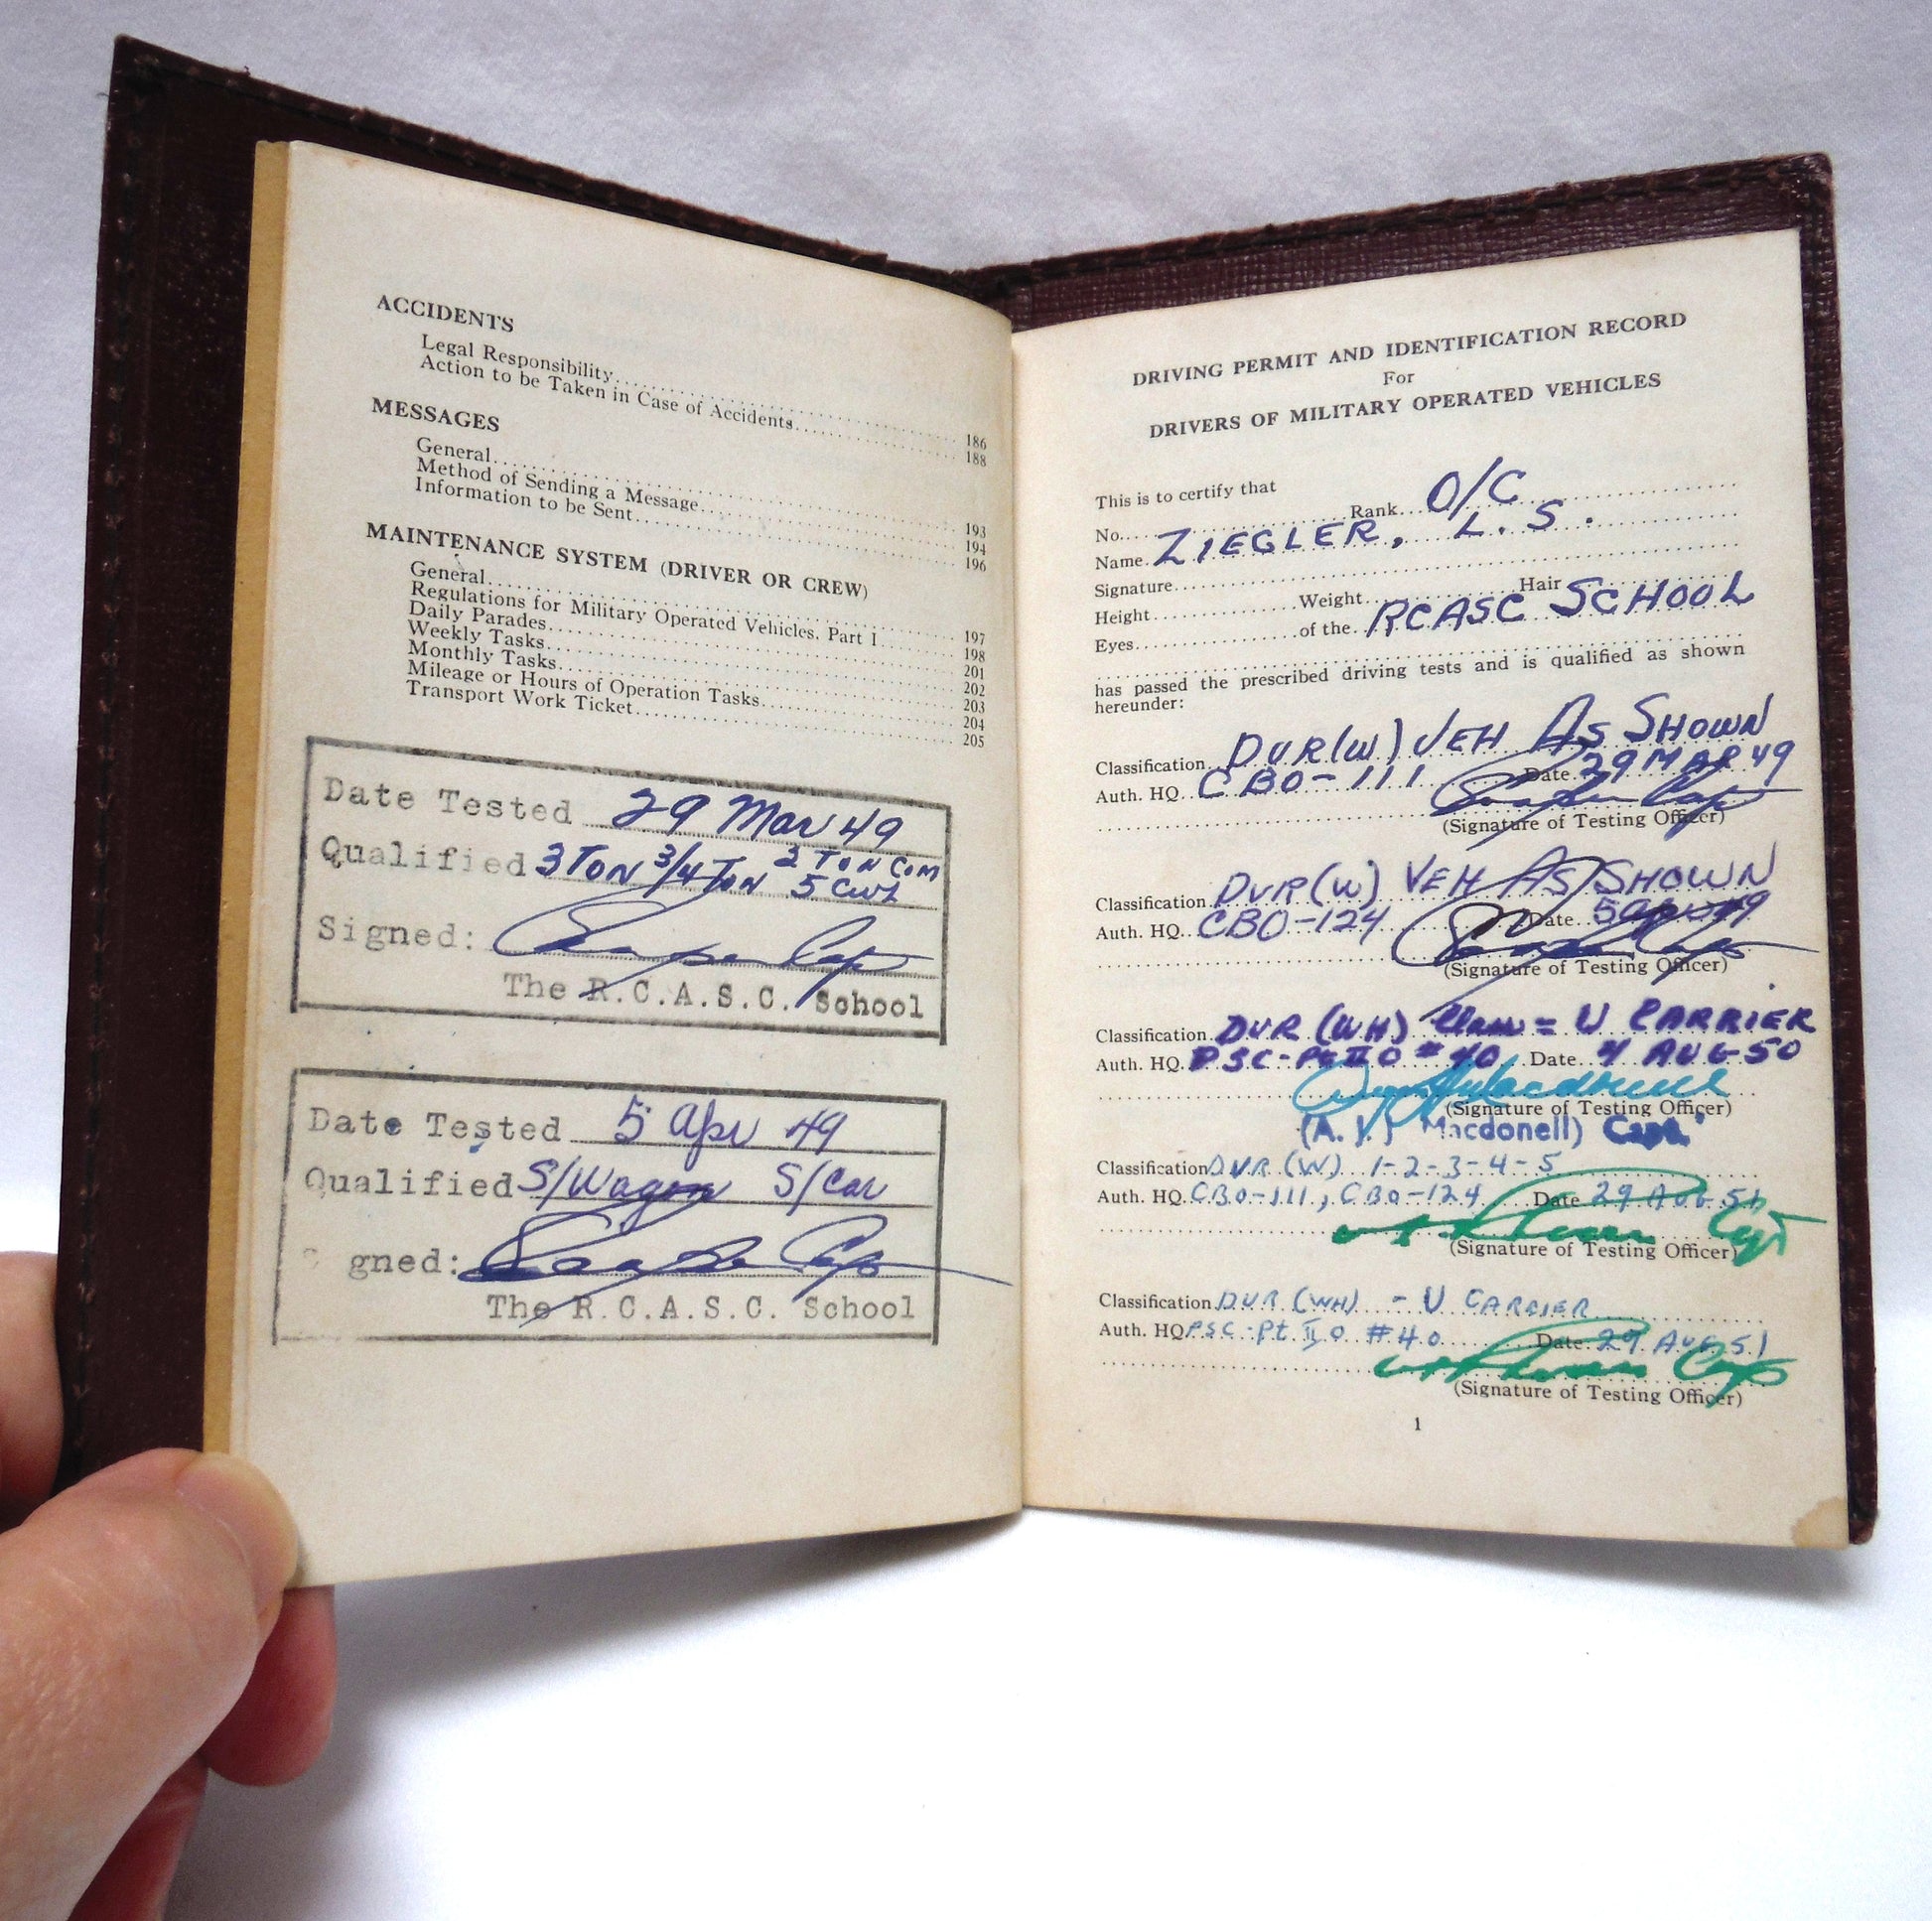 ACCIDENTS
Legal Responsibility 186
Action to be Taken in Case of Accidents 188
MESSAGES
General 193
Method of Sending a Message 194
Information to be Sent 196
MAINTENANCE SYSTEM (DRIVER OR CREW)
General 197
Regulations for Military Operated Vehicles. Part I 198
Daily Parades 201
Weekly Tasks 202
Monthly Tasks 203
Mileage or Hours of Operation Tasks 204
Transport Work Ticket 205
Date Tested 29 Mar 49
Qualified 3 TON 3/4 TON 2 TON COM
5 CWT
Signed:
The R.C.A.S.C. School
Date Tested 5 Apr 49
Qualified S/Wagon S/Car
gned:
The R.C.A.S.C. School
DRIVING PERMIT AND IDENTIFICATION RECORD
For
DRIVERS OF MILITARY OPERATED VEHICLES
This is to certify that
No. Rank O/C
Name ZIEGLER, L. S.
Signature
Height Weight Hair
Eyes of the RCASC SCHOOL
has passed the prescribed driving tests and is qualified as shown
hereunder:
Classification DVR(W) VEH AS SHOWN
Auth. HQ. CBO-111 Date 29 MAR 49
(Signature of Testing Officer)
Classification DVR(W) VEH AS SHOWN
Auth. HQ. CBO-124 Date 5 Apr 49
(Signature of Testing Officer)
Classification DVR (WH) = U CARRIER
Auth. HQ. PSC-Pt II O #40 Date 4 AUG 50
(Signature of Testing Officer)
Macdonell) Capt.
Classification DVR (W) 1-2-3-4-5
Auth. HQ. CBO-111, CBO-124 Date 29 AUG 51
(Signature of Testing Officer)
Classification DVR (WH) - U CARRIER
Auth. HQ PSC-Pt II O #40 Date 29 AUG 51
(Signature of Testing Officer)
1